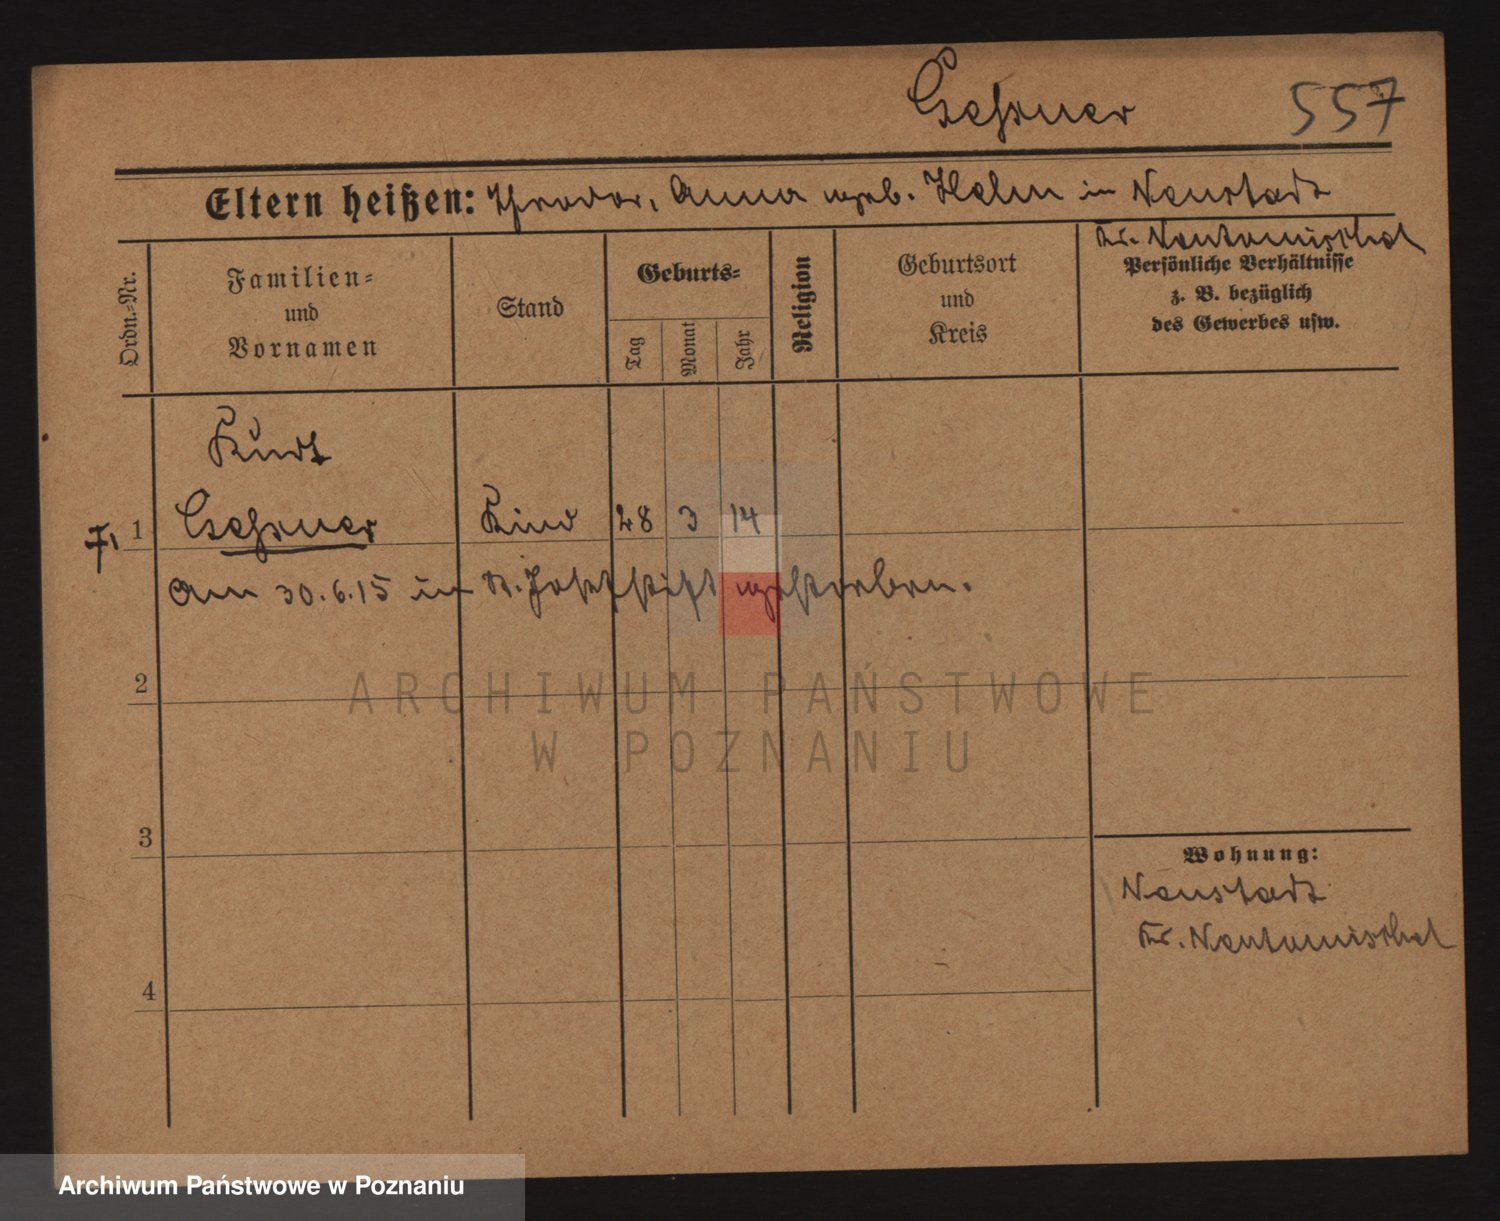 Gessner 557
Eltern heißen: Theodor, Anna geb. Helm in Neustadt
Kr. Neutomischel
Ordn.-Nr.
Familien-
und
Vornamen
Stand
Geburts-
Tag
Monat
Jahr
Religion
Geburtsort
und
Kreis
Persönliche Verhältnisse
z. B. bezüglich
des Gewerbes usw.
Kurt
1 Gessner Kind 28 3 14
Am 30.6.15 im St. Josefstift gestorben.
2
ARCHIWUM PAŃSTWOWE
W POZNANIU
3
Wohnung:
Neustadt
Kr. Neutomischel
4
Archiwum Państwowe w Poznaniu